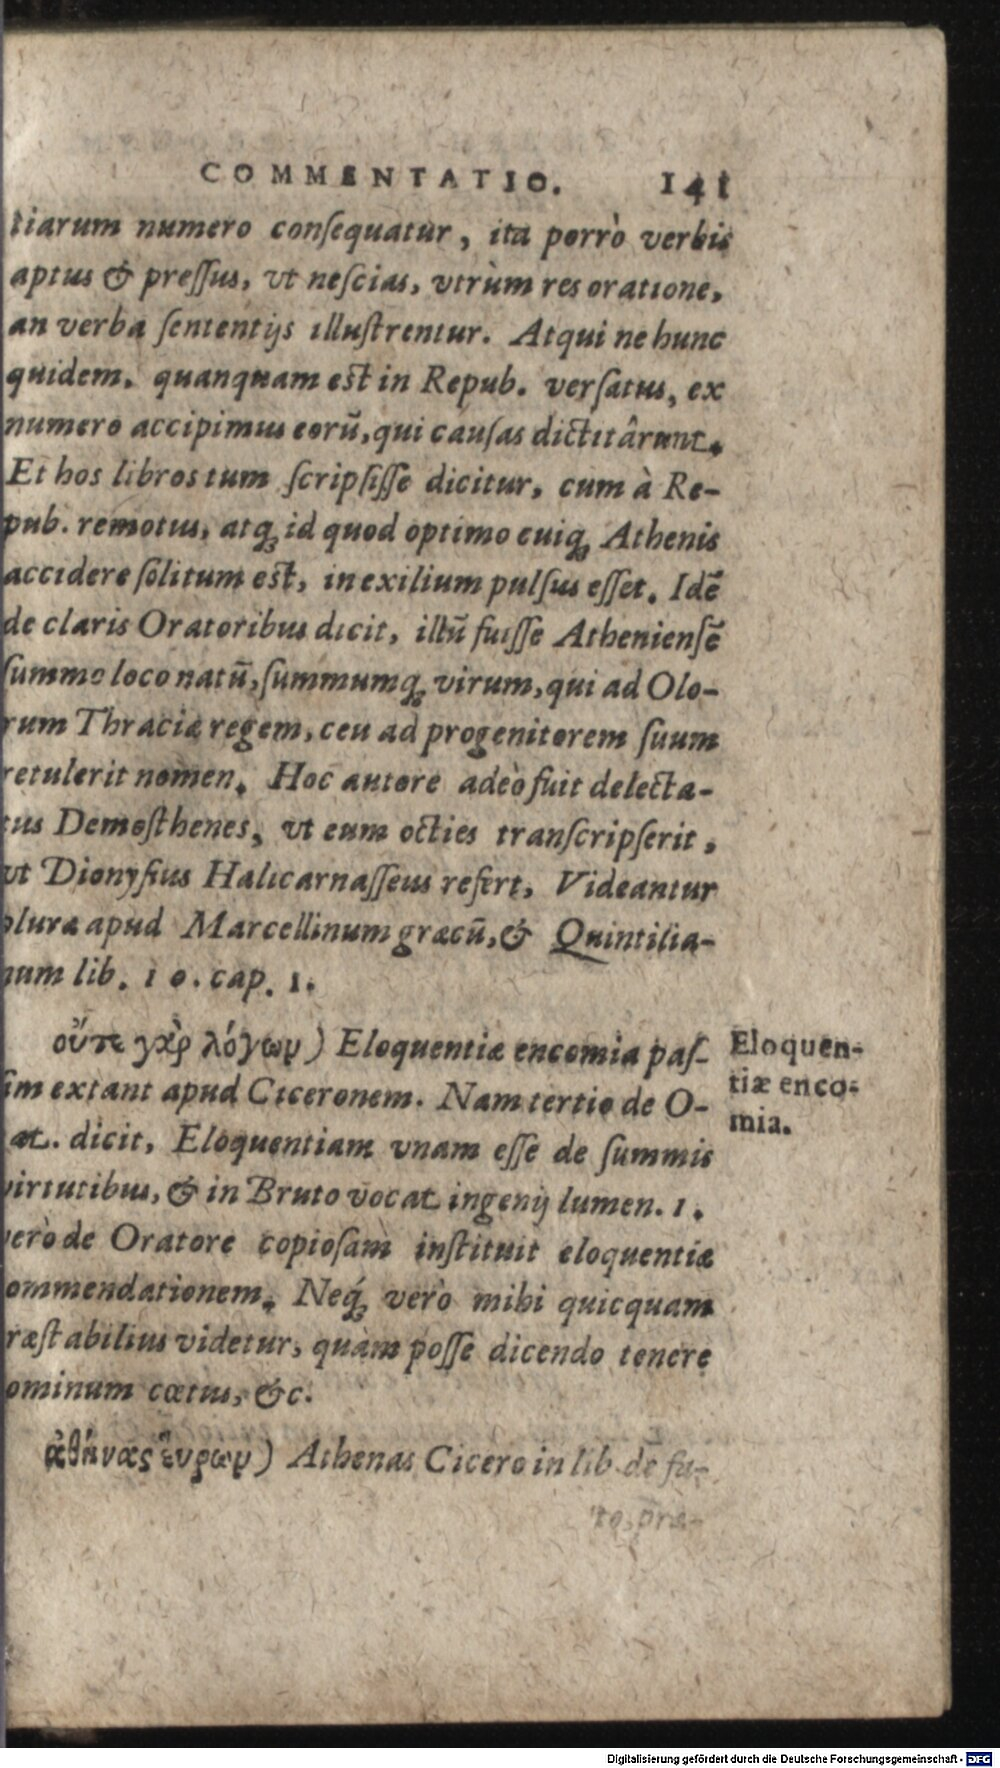 COMMENTATIO. 141
tiarum numero conſequatur, ita porrò verbis
aptus & preſſus, vt neſcias, vtrùm res oratione,
an verba ſententijs illuſtrentur. Atqui ne hunc
quidem, quanquam eſt in Repub. verſatus, ex
numero accipimus eorũ, qui cauſas dictitârunt.
Et hos libros tum ſcripſiſſe dicitur, cum à Re-
pub. remotus, atq; id quod optimo cuiq; Athenis
accidere ſolitum eſt, in exilium pulſus eſſet. Idẽ
de claris Oratoribus dicit, illũ fuiſſe Athenienſẽ
ſummo loco natũ, ſummumq; virum, qui ad Olo-
rum Thraciæ regem, ceu ad progenitorem ſuum
retulerit nomen. Hoc autore adeò fuit delecta-
tus Demoſthenes, vt eum octies tranſcripſerit,
vt Dionyſius Halicarnaſſeus refert, Videantur
plura apud Marcellinum græcũ, & Quintilia-
num lib. 10. cap. 1.
οὔτε γὰρ λόγων) Eloquentiæ encomia paſ-
ſim extant apud Ciceronem. Nam tertio de O-
rat. dicit, Eloquentiam vnam eſſe de ſummis
virtutibus, & in Bruto vocat ingenij lumen. 1.
verò de Oratore copioſam inſtituit eloquentiæ
commendationem. Neq; verò mihi quicquam
præſtabilius videtur, quàm poſſe dicendo tenere
hominum cœtus, &c.
ἀθήνας ἔυρων) Athenas Cicero in lib. de fa-
to, præ-
Eloquen-
tiæ enco-
mia.
Digitalisierung gefördert durch die Deutsche Forschungsgemeinschaft - DFG